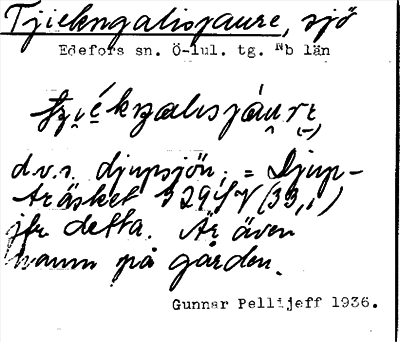 Tjiekngalisjaure, sjö
Edefors sn. Ö-lul. tg. Nb län
d.v.s. djupsjön; = Djup-
träsket
jfr detta. Är även
namn på gården.
Gunnar Pellijeff 1936.